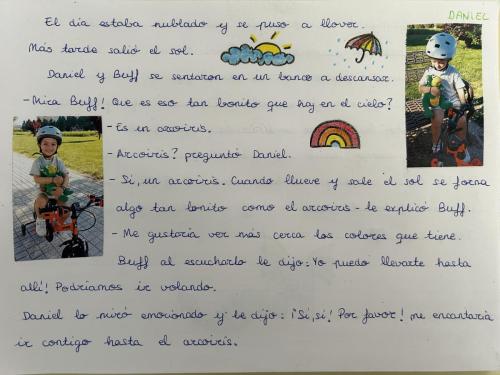 DANIEL
El día estaba nublado y se puso a llover.
Más tarde salió el sol.
Daniel y Buff se sentaron en un banco a descansar.
- Mira Buff! Que es eso tan bonito que hay en el cielo?
- Es un arcoiris.
- Arcoiris? preguntó Daniel.
- Si, un arcoiris. Cuando llueve y sale el sol se forma
algo tan bonito como el arcoiris - le explicó Buff.
- Me gustaría ver más cerca los colores que tiene.
Buff al escucharlo le dijo: Yo puedo llevarte hasta
allí! Podríamos ir volando.
Daniel lo miró emocionado y le dijo: ¡Si, si! Por favor! me encantaría
ir contigo hasta el arcoiris.